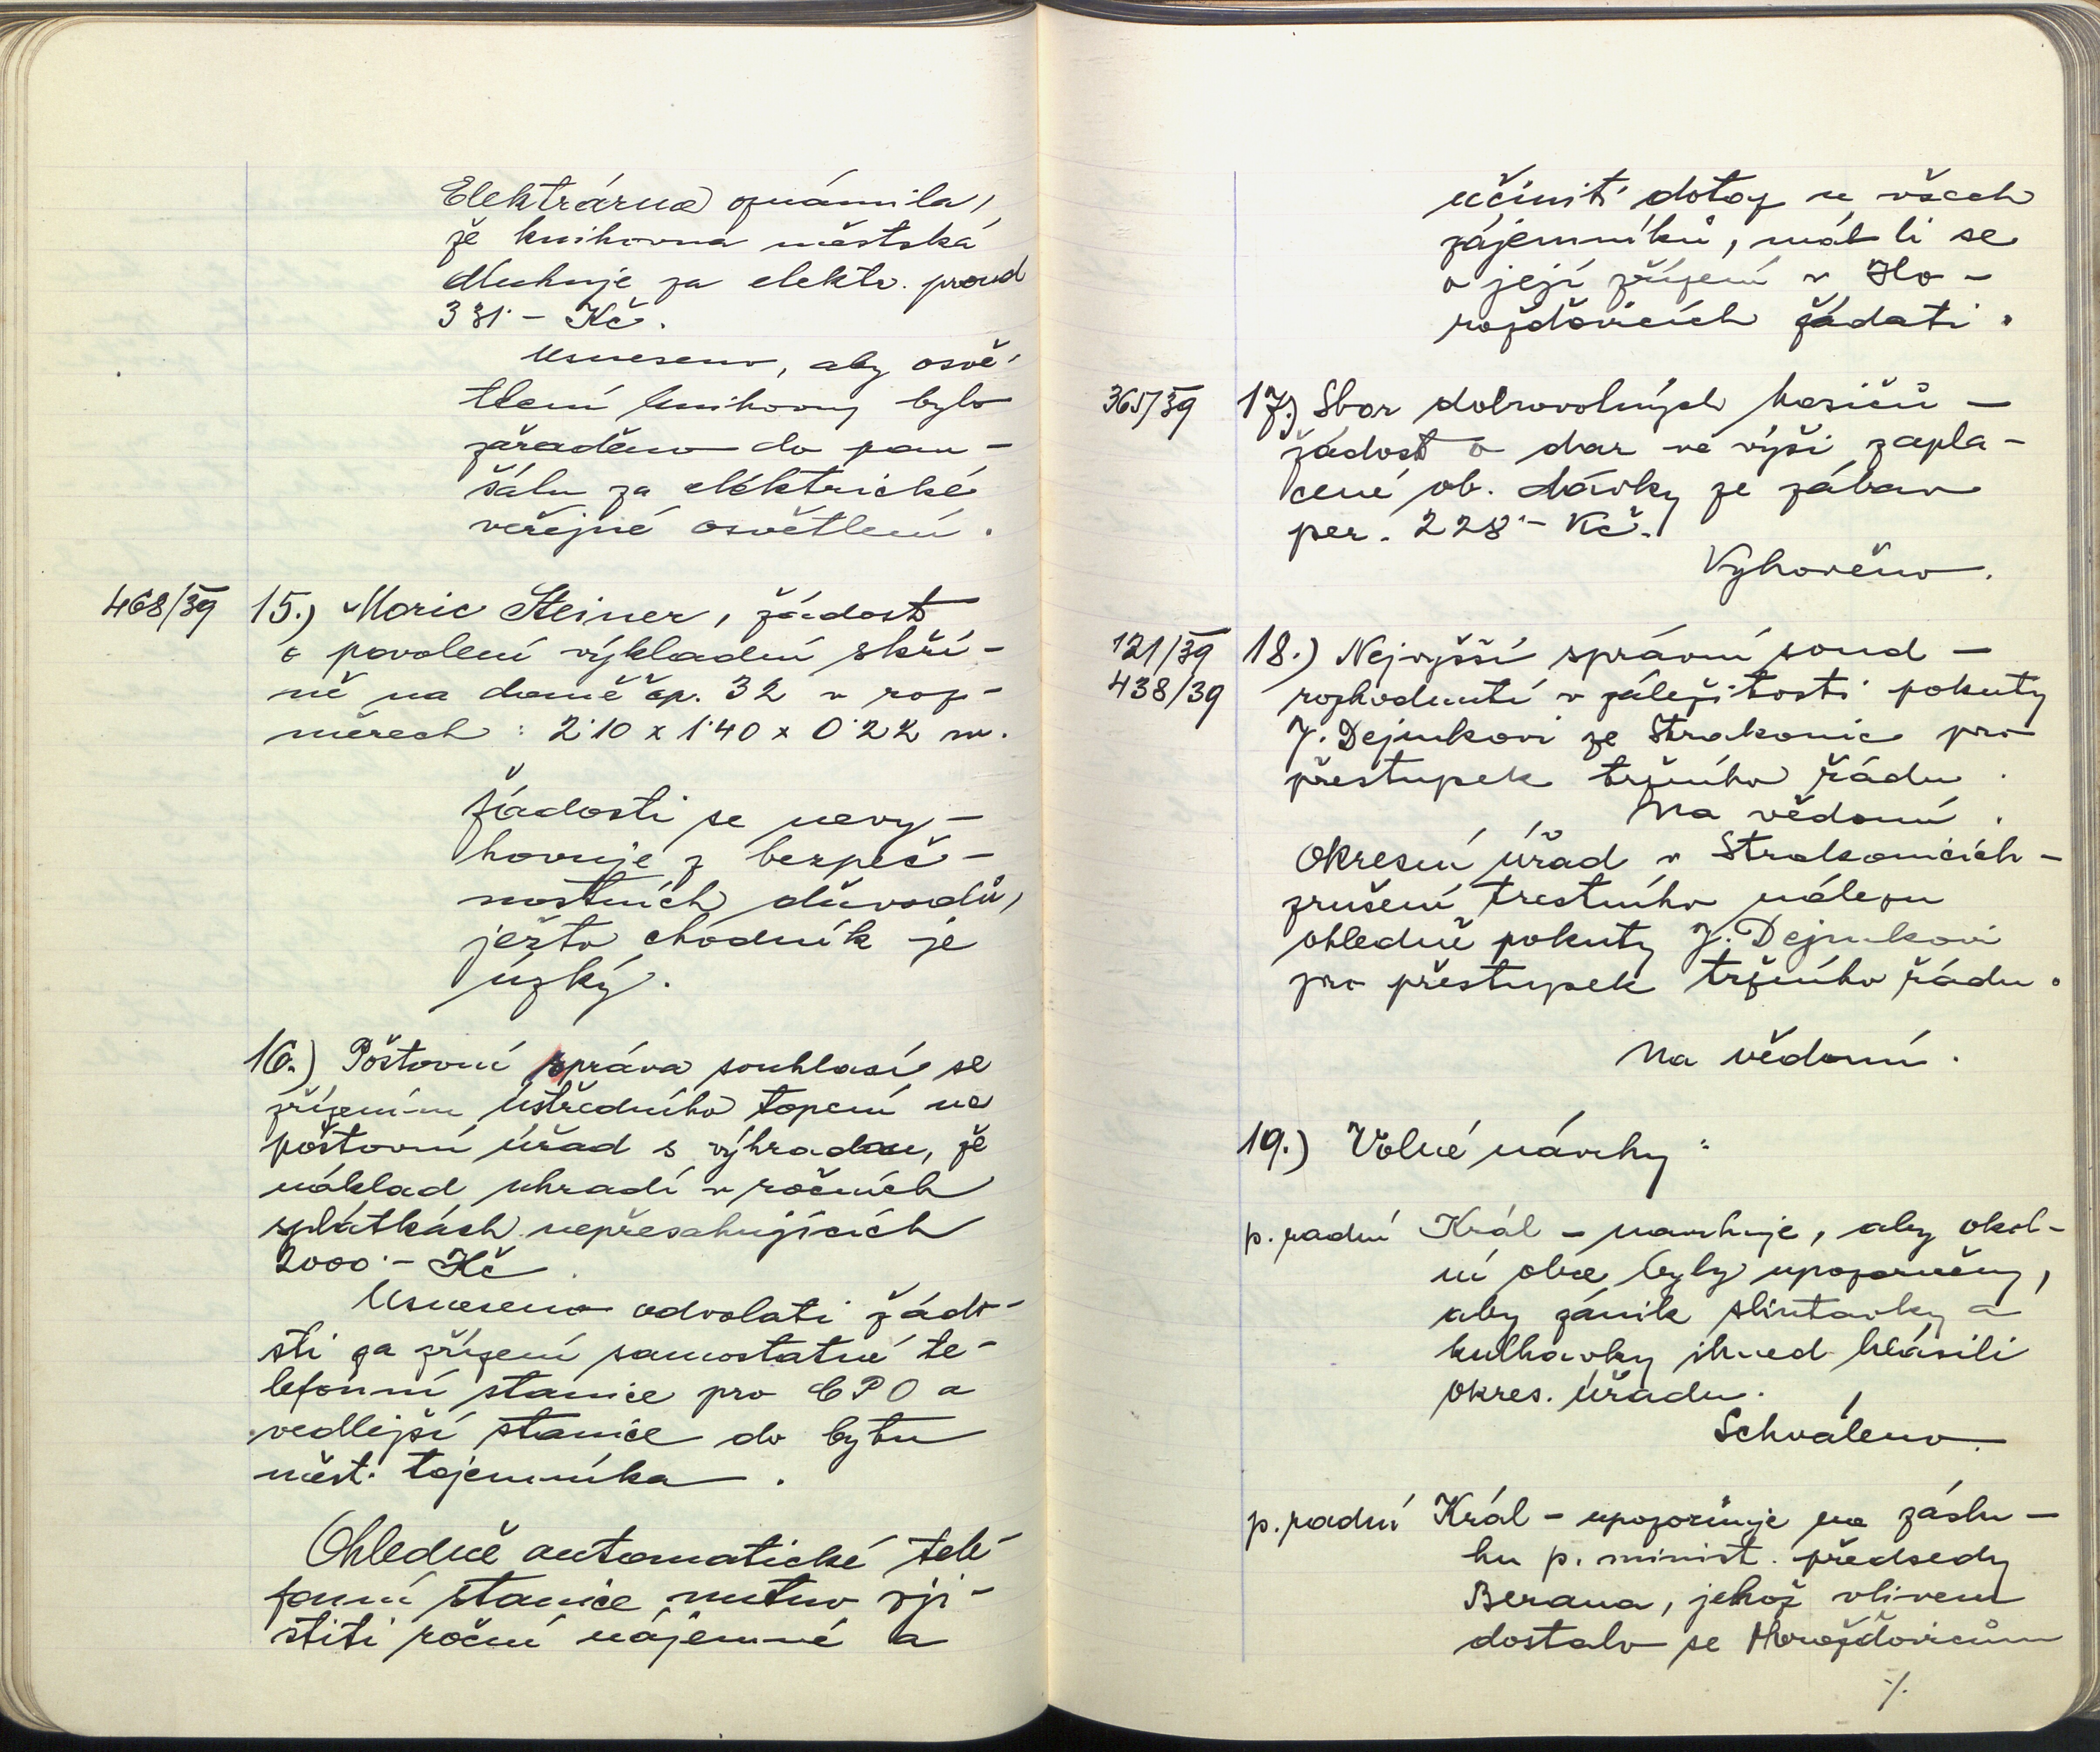 Elektrárna oznámila,
že knihovna městská
dluhuje za elektr. proud
331·- Kč.
Usneseno, aby osvě-
tlení knihovny bylo
zařaděno do pau-
šálu za eléktrické
veřejné osvětlení.
468/39 15.) Moric Steiner, žádost
o povolení výkladní skří-
ně na domě čp. 32 v roz-
měrech: 2·10 x 1·40 x 0·22 m.
Žádosti se nevy-
hovuje z bezpeč-
nostních důvodů,
ježto chodník je
úzký.
16.) Poštovní správa souhlasí se
zřízením ústředního topení na
poštovní úřad s výhradou, že
náklad uhradí v ročních
splátkách nepřesahujících
2000·- Kč.
Usneseno odvolati žádo-
sti za zřízení samostatné te-
lefonní stanice pro CPO a
vedlejší stanice do bytu
měst. tajemníka.
Ohledně automatické tele-
fonní stanice nutno zji-
stiti roční nájemné a
učiniti dotaz u všech
zájemníků, mát-li se
o její zřízení v Ho-
ražďovicích žádati.
365/39 17.) Sbor dobrovolných hasičů -
žádost o dar ve výši zapla-
cené ob. dávky ze zábav
per. 228·- Kč.
Vyhověno.
121/39 18.) Nejvyšší správní soud -
438/39 rozhodnutí v záležitosti pokuty
J. Dejmkovi ze Strakonic pro
přestupek tržního řádu.
Na vědomí.
Okresní úřad v Strakonicích -
zrušení trestního nálezu
ohledně pokuty J. Dejmkovi
pro přestupek tržního řádu.
Na vědomí.
19.) Volné návrhy:
p. radní Král - navrhuje, aby okol-
ní obce byly upozorněny,
aby zánik slintavky a
kulhavky ihned hlásili
okres. úřadu.
Schváleno.
p. radní Král - upozorňuje na záslu-
hu p. minist. předsedy
Berana, jehož vlivem
dostalo se Horažďovicům
·/.